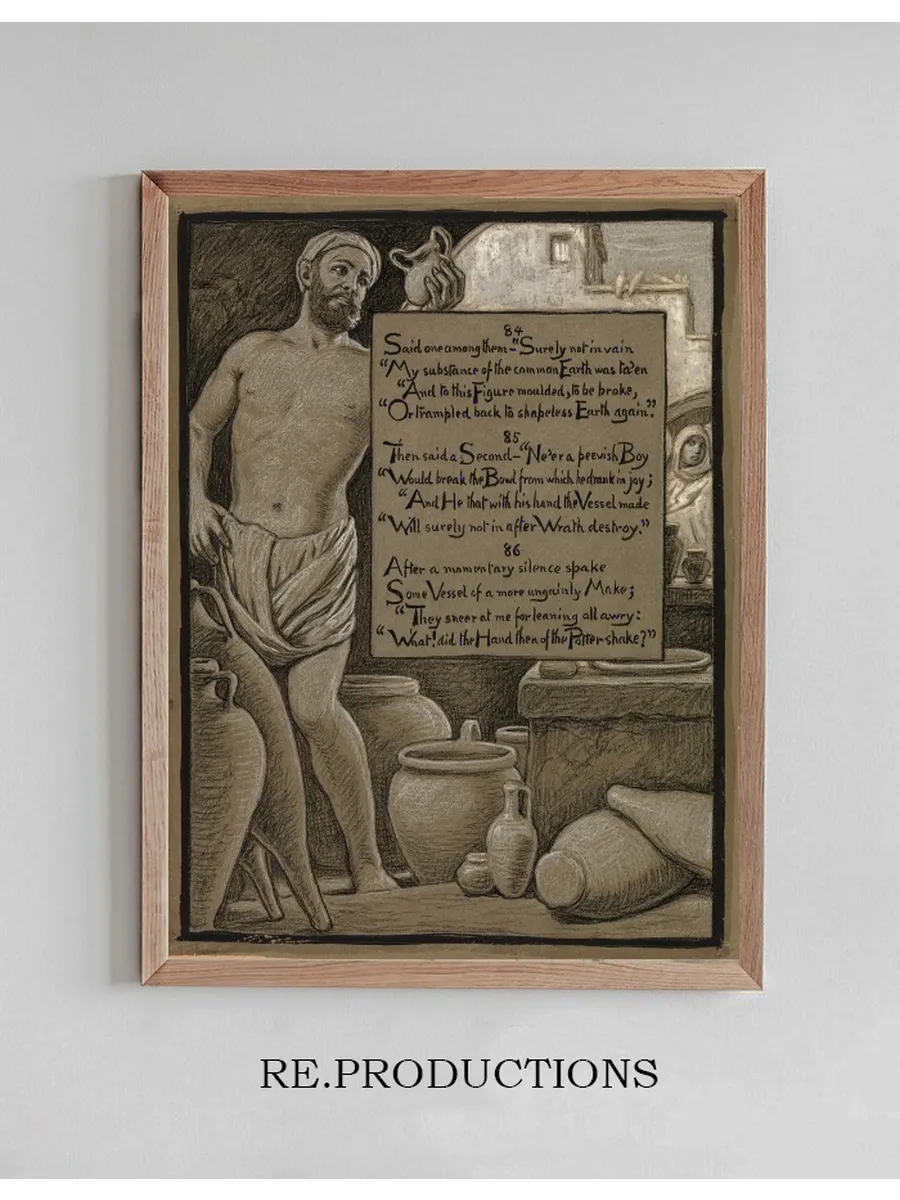 84
Said one among them—"Surely not in vain
"My substance of the common Earth was ta'en
"And to this Figure moulded, to be broke,
"Or trampled back to shapeless Earth again."
85
Then said a Second—"Ne'er a peevish Boy
"Would break the Bowl from which he drank in joy;
"And He that with his hand the Vessel made
"Will surely not in after Wrath destroy."
86
After a momentary silence spake
Some Vessel of a more ungainly Make;
"They sneer at me for leaning all awry:
"What! did the Hand then of the Potter shake?"
RE.PRODUCTIONS